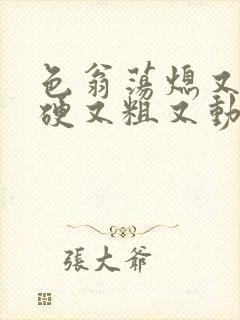 色翁荡熄又
硬又粗又動
張大爷